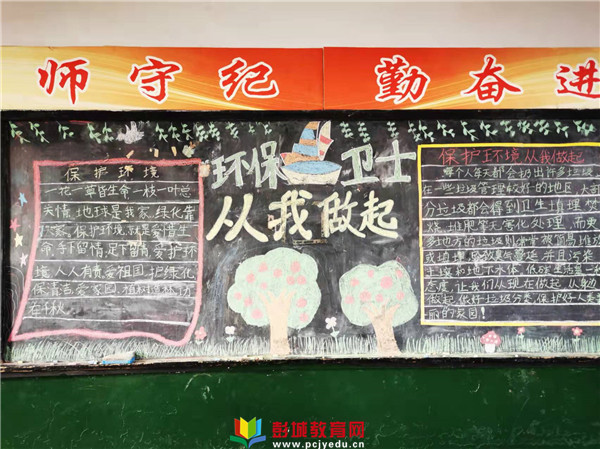 师守纪 勤奋进
环保 卫士
从我做起
保护环境
一花一草皆生命,一枝一叶总
关情,地球是我家,绿化靠
大家,保护环境,就是爱惜生
命,手下留情,足下留青,爱护环
境,人人有责,爱祖国,护绿化
保清洁,爱家园,植树造林,功
在千秋。
保护环境从我做起
每个人每天都会扔出许多垃圾,
在一些垃圾管理较好的地区,大部
分垃圾都会得到卫生填埋、焚
烧、堆肥等无害化处理,而更
多地方的垃圾则常常被简易堆放
或填埋,导致臭气蔓延,并且污染
土壤和地下水体,低碳生活是一种
态度,让我们从现在做起,从身边
做起,做好垃圾分类,保护好人类美
丽的家园!
彭城教育网
www.pcjyedu.cn